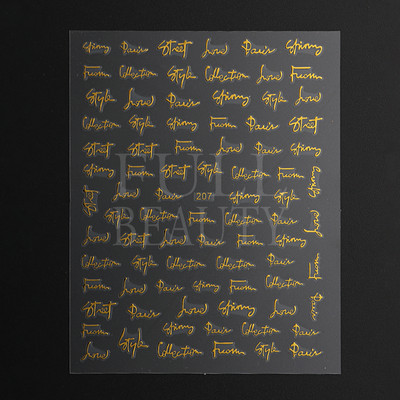 Spring Paris Street Love Paris Spring
From Collection Style Collection Love From
Style Love Paris Spring Style Love
Collection Style Spring From Paris Street
Street Street From Love Paris Street
Spring From Street Style Collection From
FULL
Street Love Paris 207 Spring Style Spring
Style Collection From Collection Paris Love
BEAUTY
Love Street Love Paris From Spring
Collection Style Collection Collection Paris From
From Love Paris Spring From Collection
Street Paris Love Spring Love Paris
From Spring Paris Collection Paris
Love Style Collection From Style Paris